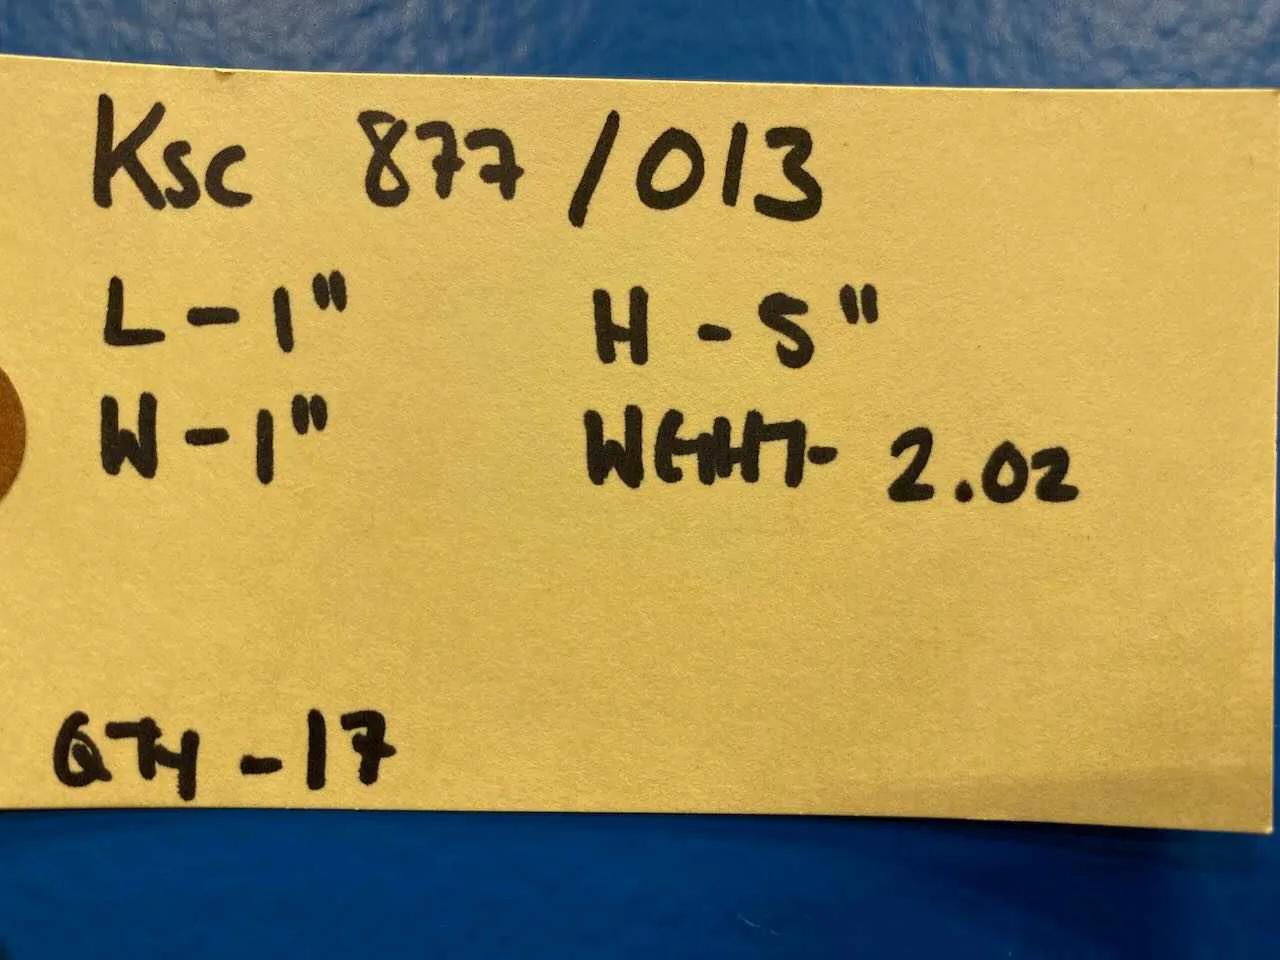 Ksc 877/013
L-1" H-5"
W-1" WGHT- 2.02
QTY-17